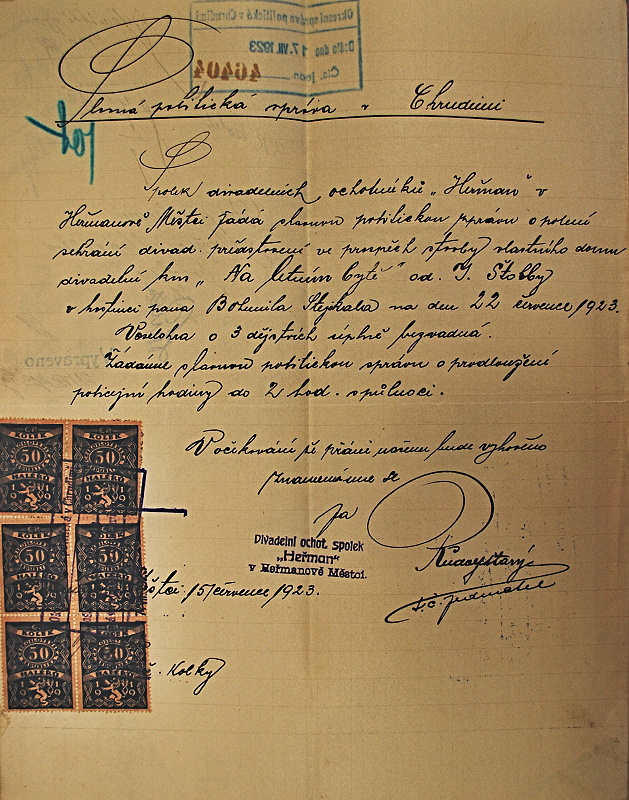 Okresní správa politická v Chrudimi
Došlo dne 17. VII. 1923
Čís. jedn. 46404
Slavná politická správa v Chrudimi
Spolek divadelních ochotníků „Heřman" v
Heřmanově Městci žádá slavnou politickou správu o polení
sehrání divad. představení ve prospěch stavby vlastního domu
divadelní kus „Na letním bytě" od J. Štolby
v hostinci pana Bohumila Stejskala na den 22 července 1923.
Veselohra o 3 dějstvích úplně bezvadná.
Žádáme slavnou politickou správu o prodloužení
policejní hodiny do 2 hod. s půlnoci.
V očekávání že přání našemu bude vyhověno
znamenáme se
Za
Divadelní ochot. spolek
„Heřman"
v Heřmanově Městci.
Městci 15 července 1923.
t.č. jednatel
Kolky
Vypraveno
KOLEK
50
HALÉŘŮ
1919
KOLEK
50
HALÉŘŮ
1919
KOLEK
50
HALÉŘŮ
1919
KOLEK
50
HALÉŘŮ
1919
KOLEK
50
HALÉŘŮ
1919
KOLEK
50
HALÉŘŮ
1919